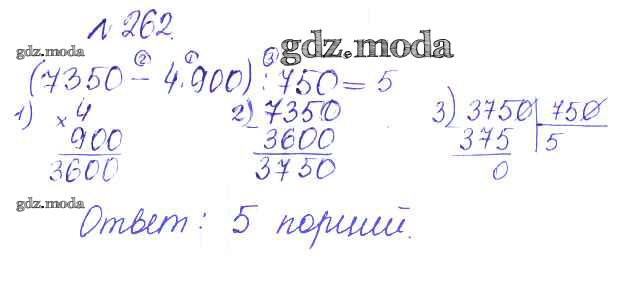 № 262.
gdz.moda
gdz.moda
② ① ③
(7350 - 4·900) : 750 = 5
1) × 4
900
3600
2) 7350
3600
3750
3) 3750 750
375 5
0
gdz.moda
Ответ: 5 порций.